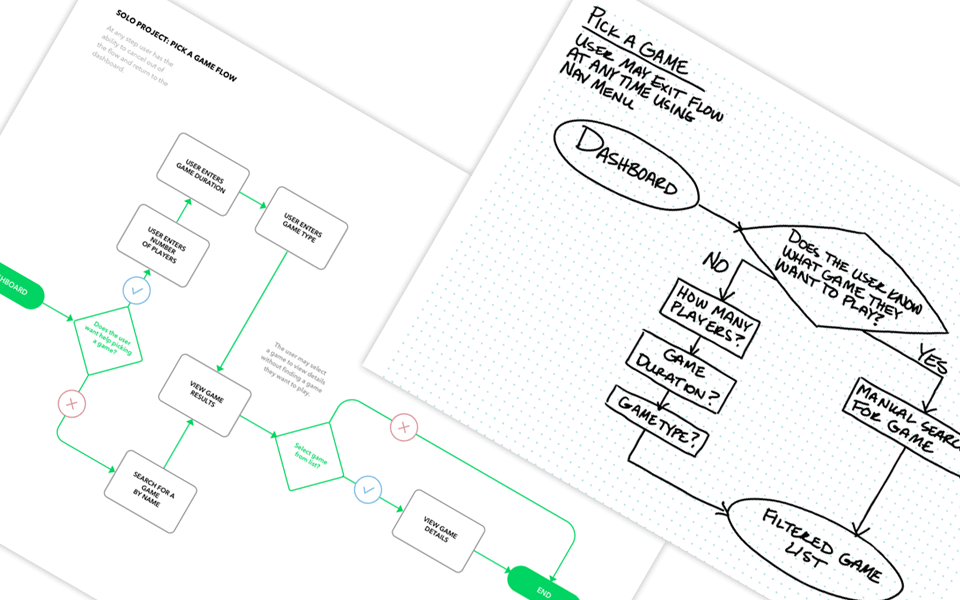 SOLO PROJECT: PICK A GAME FLOW
At any step user has the
ability to cancel out of
the flow and return to the
dashboard.
USER ENTERS
GAME DURATION
USER ENTERS
GAME TYPE
USER ENTERS
NUMBER
OF PLAYERS
HBOARD
Does the user
want help picking
a game?
The user may select
a game to view details
without finding a game
they want to play.
VIEW GAME
RESULTS
Select game
from list?
SEARCH FOR A
GAME
BY NAME
VIEW GAME
DETAILS
END
PICK A GAME
USER MAY EXIT FLOW
AT ANY TIME USING
NAV MENU
DASHBOARD
DOES THE USER KNOW
WHAT GAME THEY
WANT TO PLAY?
NO
HOW MANY
PLAYERS?
YES
GAME
DURATION?
MANUAL SEARC
FOR GAME
GAMETYPE?
FILTERED GAME
LIST